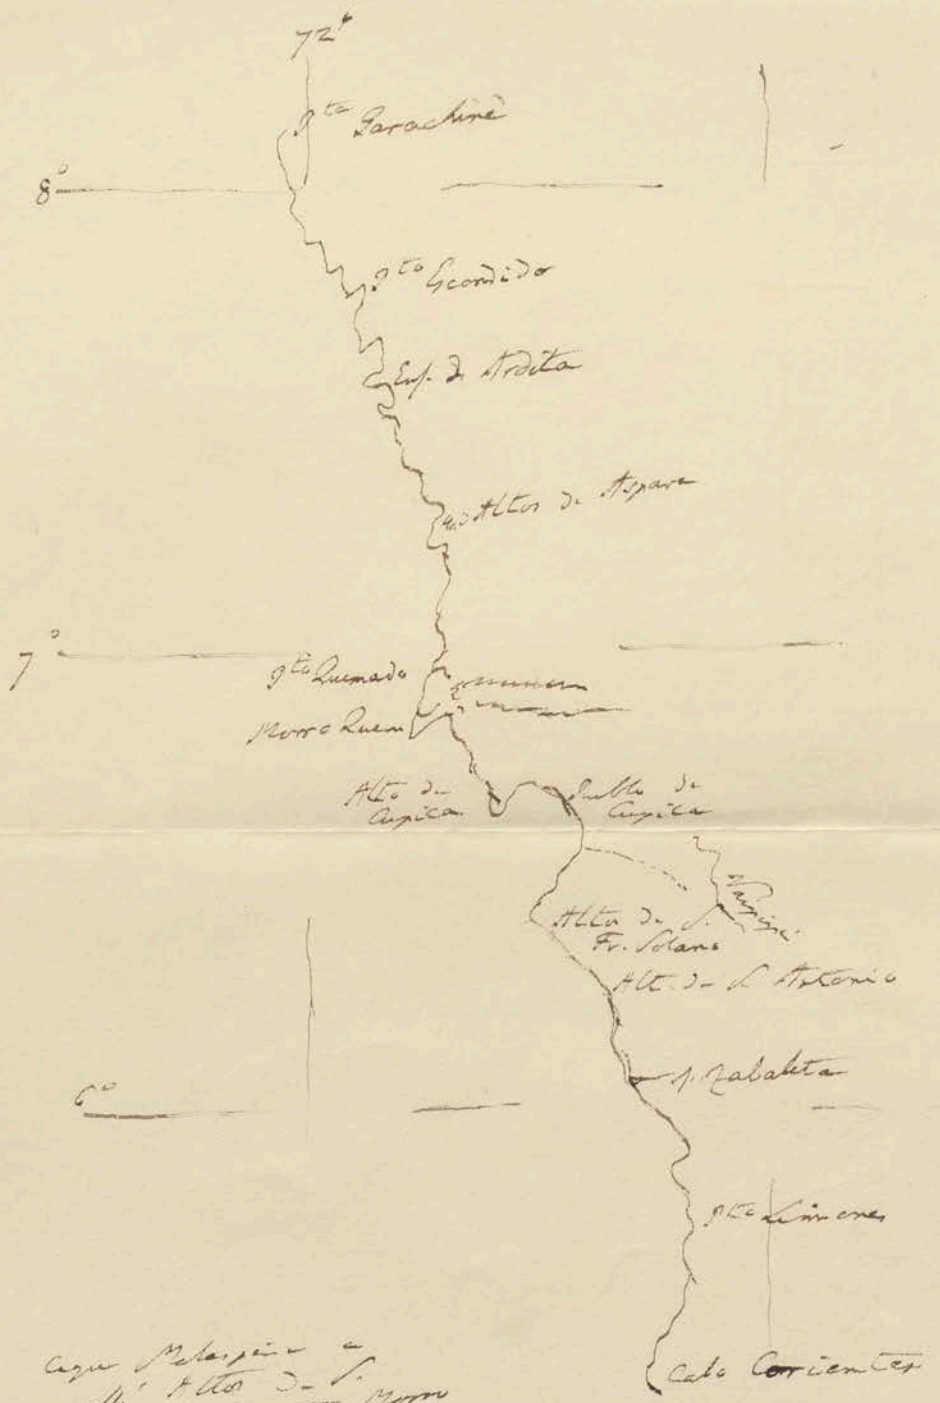 72°
Pta Garachiné
8°
Pto Escondido
Ens. de Ardita
Altos de Aspave
7°
Pto Quemado
Morro Quem
Alto de
Cupica
Pueblo de
Cupica
Naipipi
Altos de S.
Fr. Solano
Alt. de S. Antonio
6°
Zabaleta
Pto Limones
Cabo Corientes
Malaspina
Altos de S.
Morro